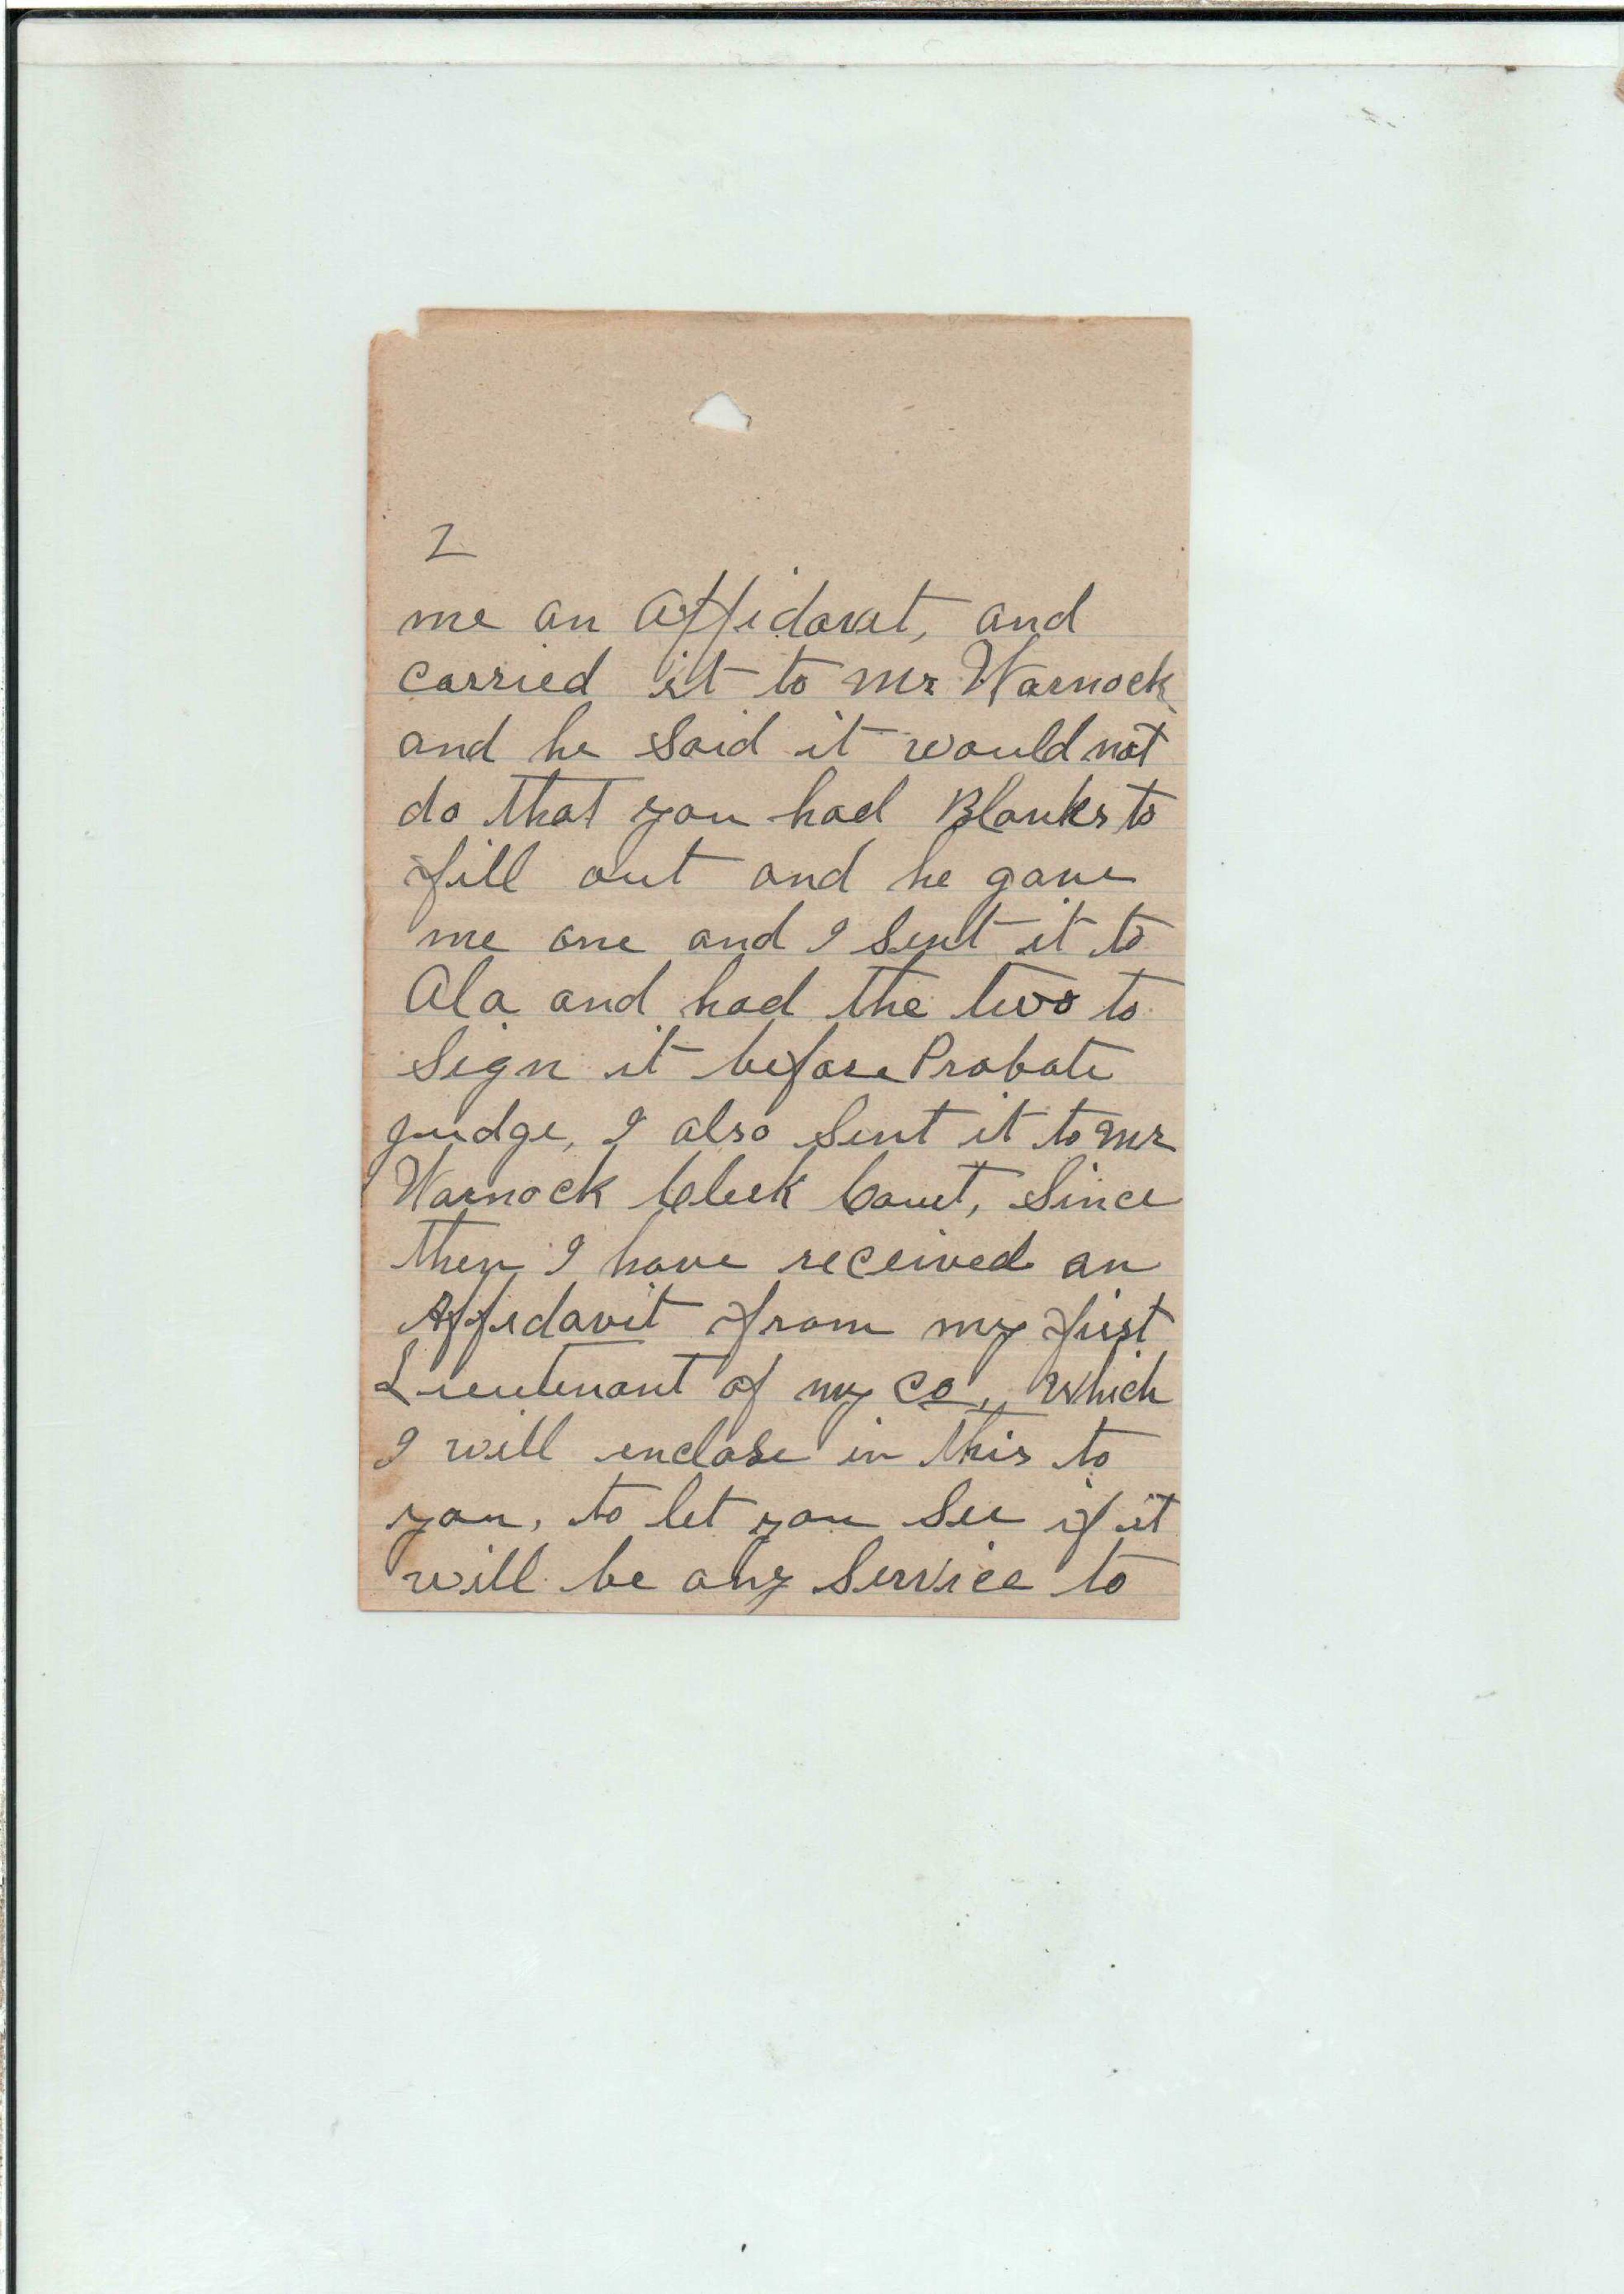 2
me an Affidavat, and
carried it to Mr Warnock
and he Said it would not
do that you had Blanks to
fill out and he gave
me one and I Sent it to
Ala and had the two to
Sign it before Probate
judge, I also Sent it to Mr
Warnock Cleek Court, Since
then I have received an
Affidavit from my first
Lieutenant of my Co, Which
I will enclose in this to
you, to let you See if it
will be any Service to